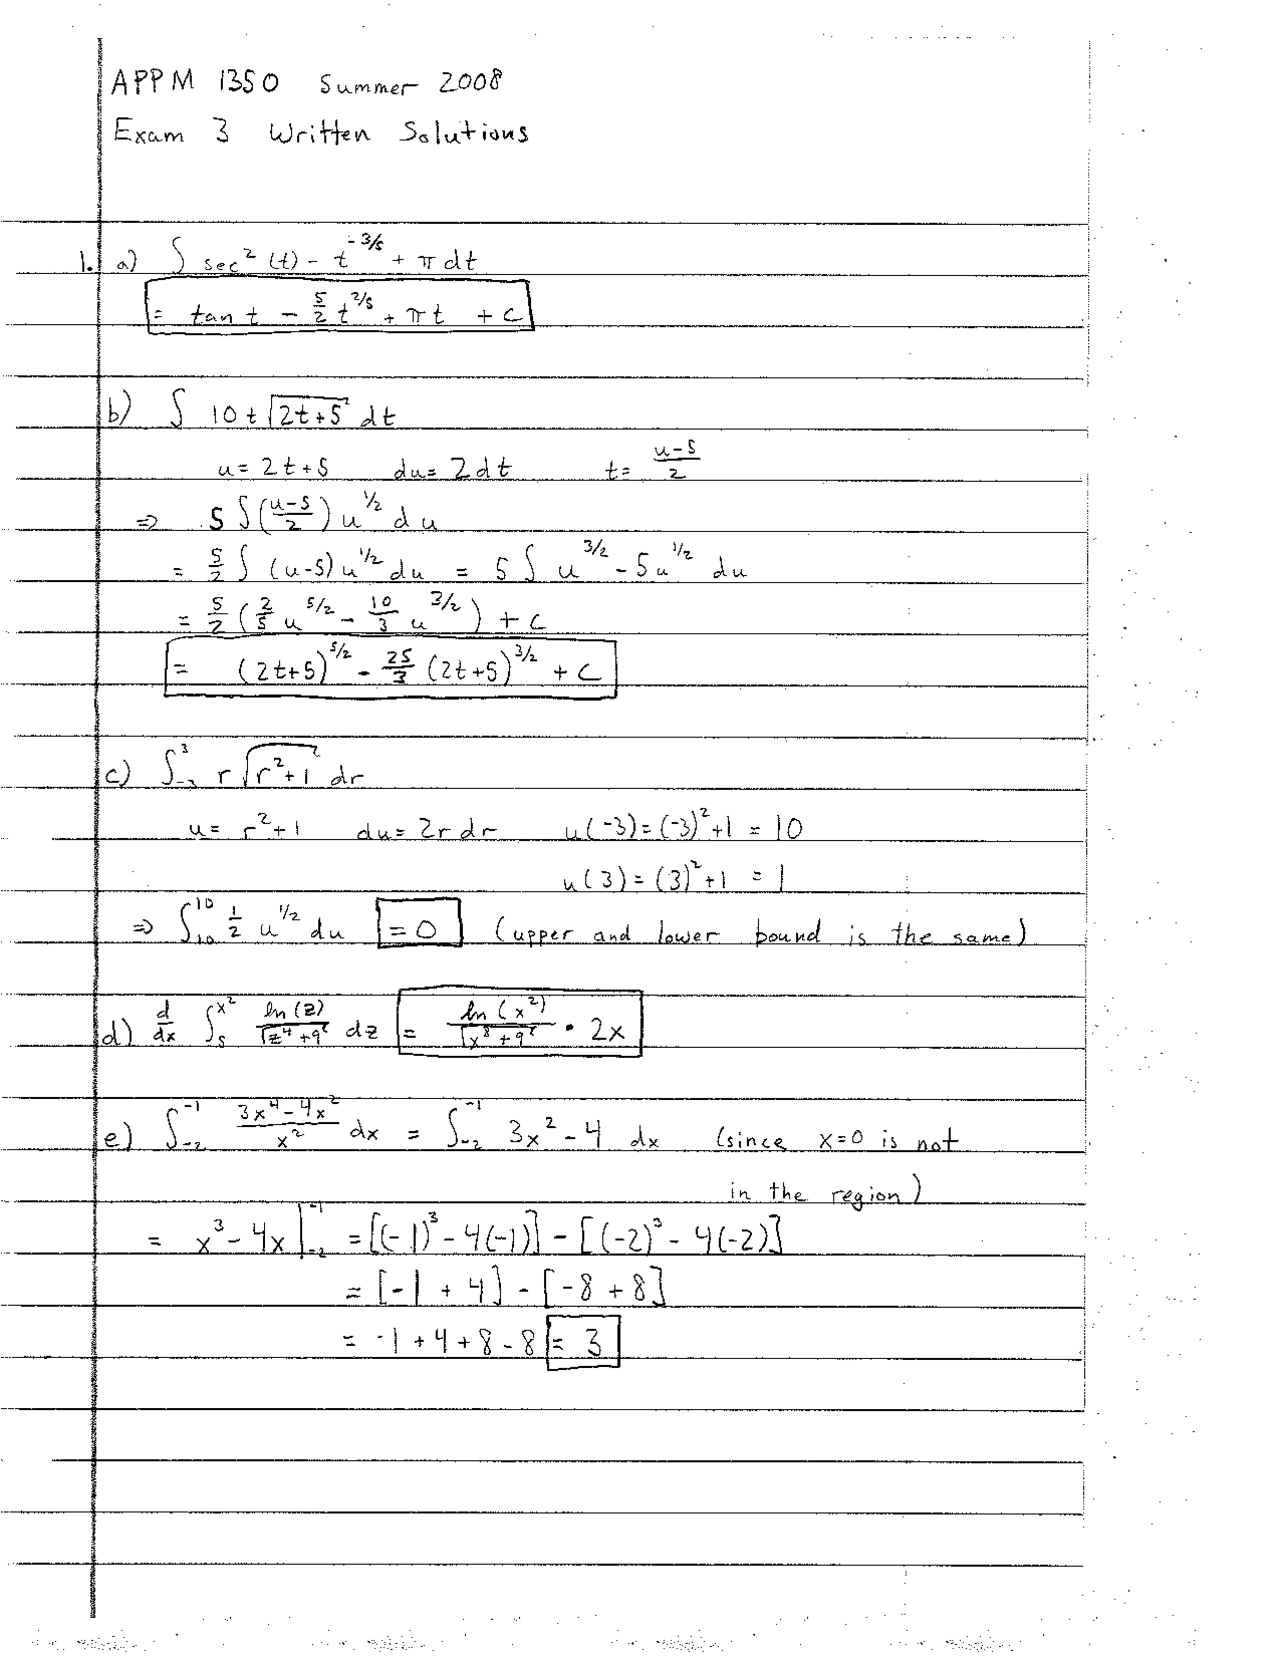 APPM 1350 Summer 2008
Exam 3 Written Solutions
1. a) ∫ sec² (t) - t^(-3/5) + π dt
= tan t - 5/2 t^(2/5) + πt + C
b) ∫ 10t √(2t+5) dt
u = 2t+5 du = 2dt t = (u-5)/2
⇒ 5 ∫ ((u-5)/2) u^(1/2) du
= 5/2 ∫ (u-5) u^(1/2) du = 5 ∫ u^(3/2) - 5u^(1/2) du
= 5/2 (2/5 u^(5/2) - 10/3 u^(3/2)) + C
= (2t+5)^(5/2) - 25/3 (2t+5)^(3/2) + C
c) ∫_{-3}^{3} r √(r²+1) dr
u = r²+1 du = 2r dr u(-3) = (-3)²+1 = 10
u(3) = (3)²+1 = 1
⇒ ∫_{10}^{10} 1/2 u^(1/2) du = 0 (upper and lower bound is the same)
d) d/dx ∫_{5}^{x²} ln(z)/√(z⁴+9) dz = ln(x²)/√(x⁸+9) • 2x
e) ∫_{-2}^{-1} (3x⁴-4x²)/x² dx = ∫_{-2}^{-1} 3x²-4 dx (since x=0 is not
in the region)
= x³-4x |_{-2}^{-1} = [(-1)³-4(-1)] - [(-2)³-4(-2)]
= [-1+4] - [-8+8]
= -1+4+8-8 = 3